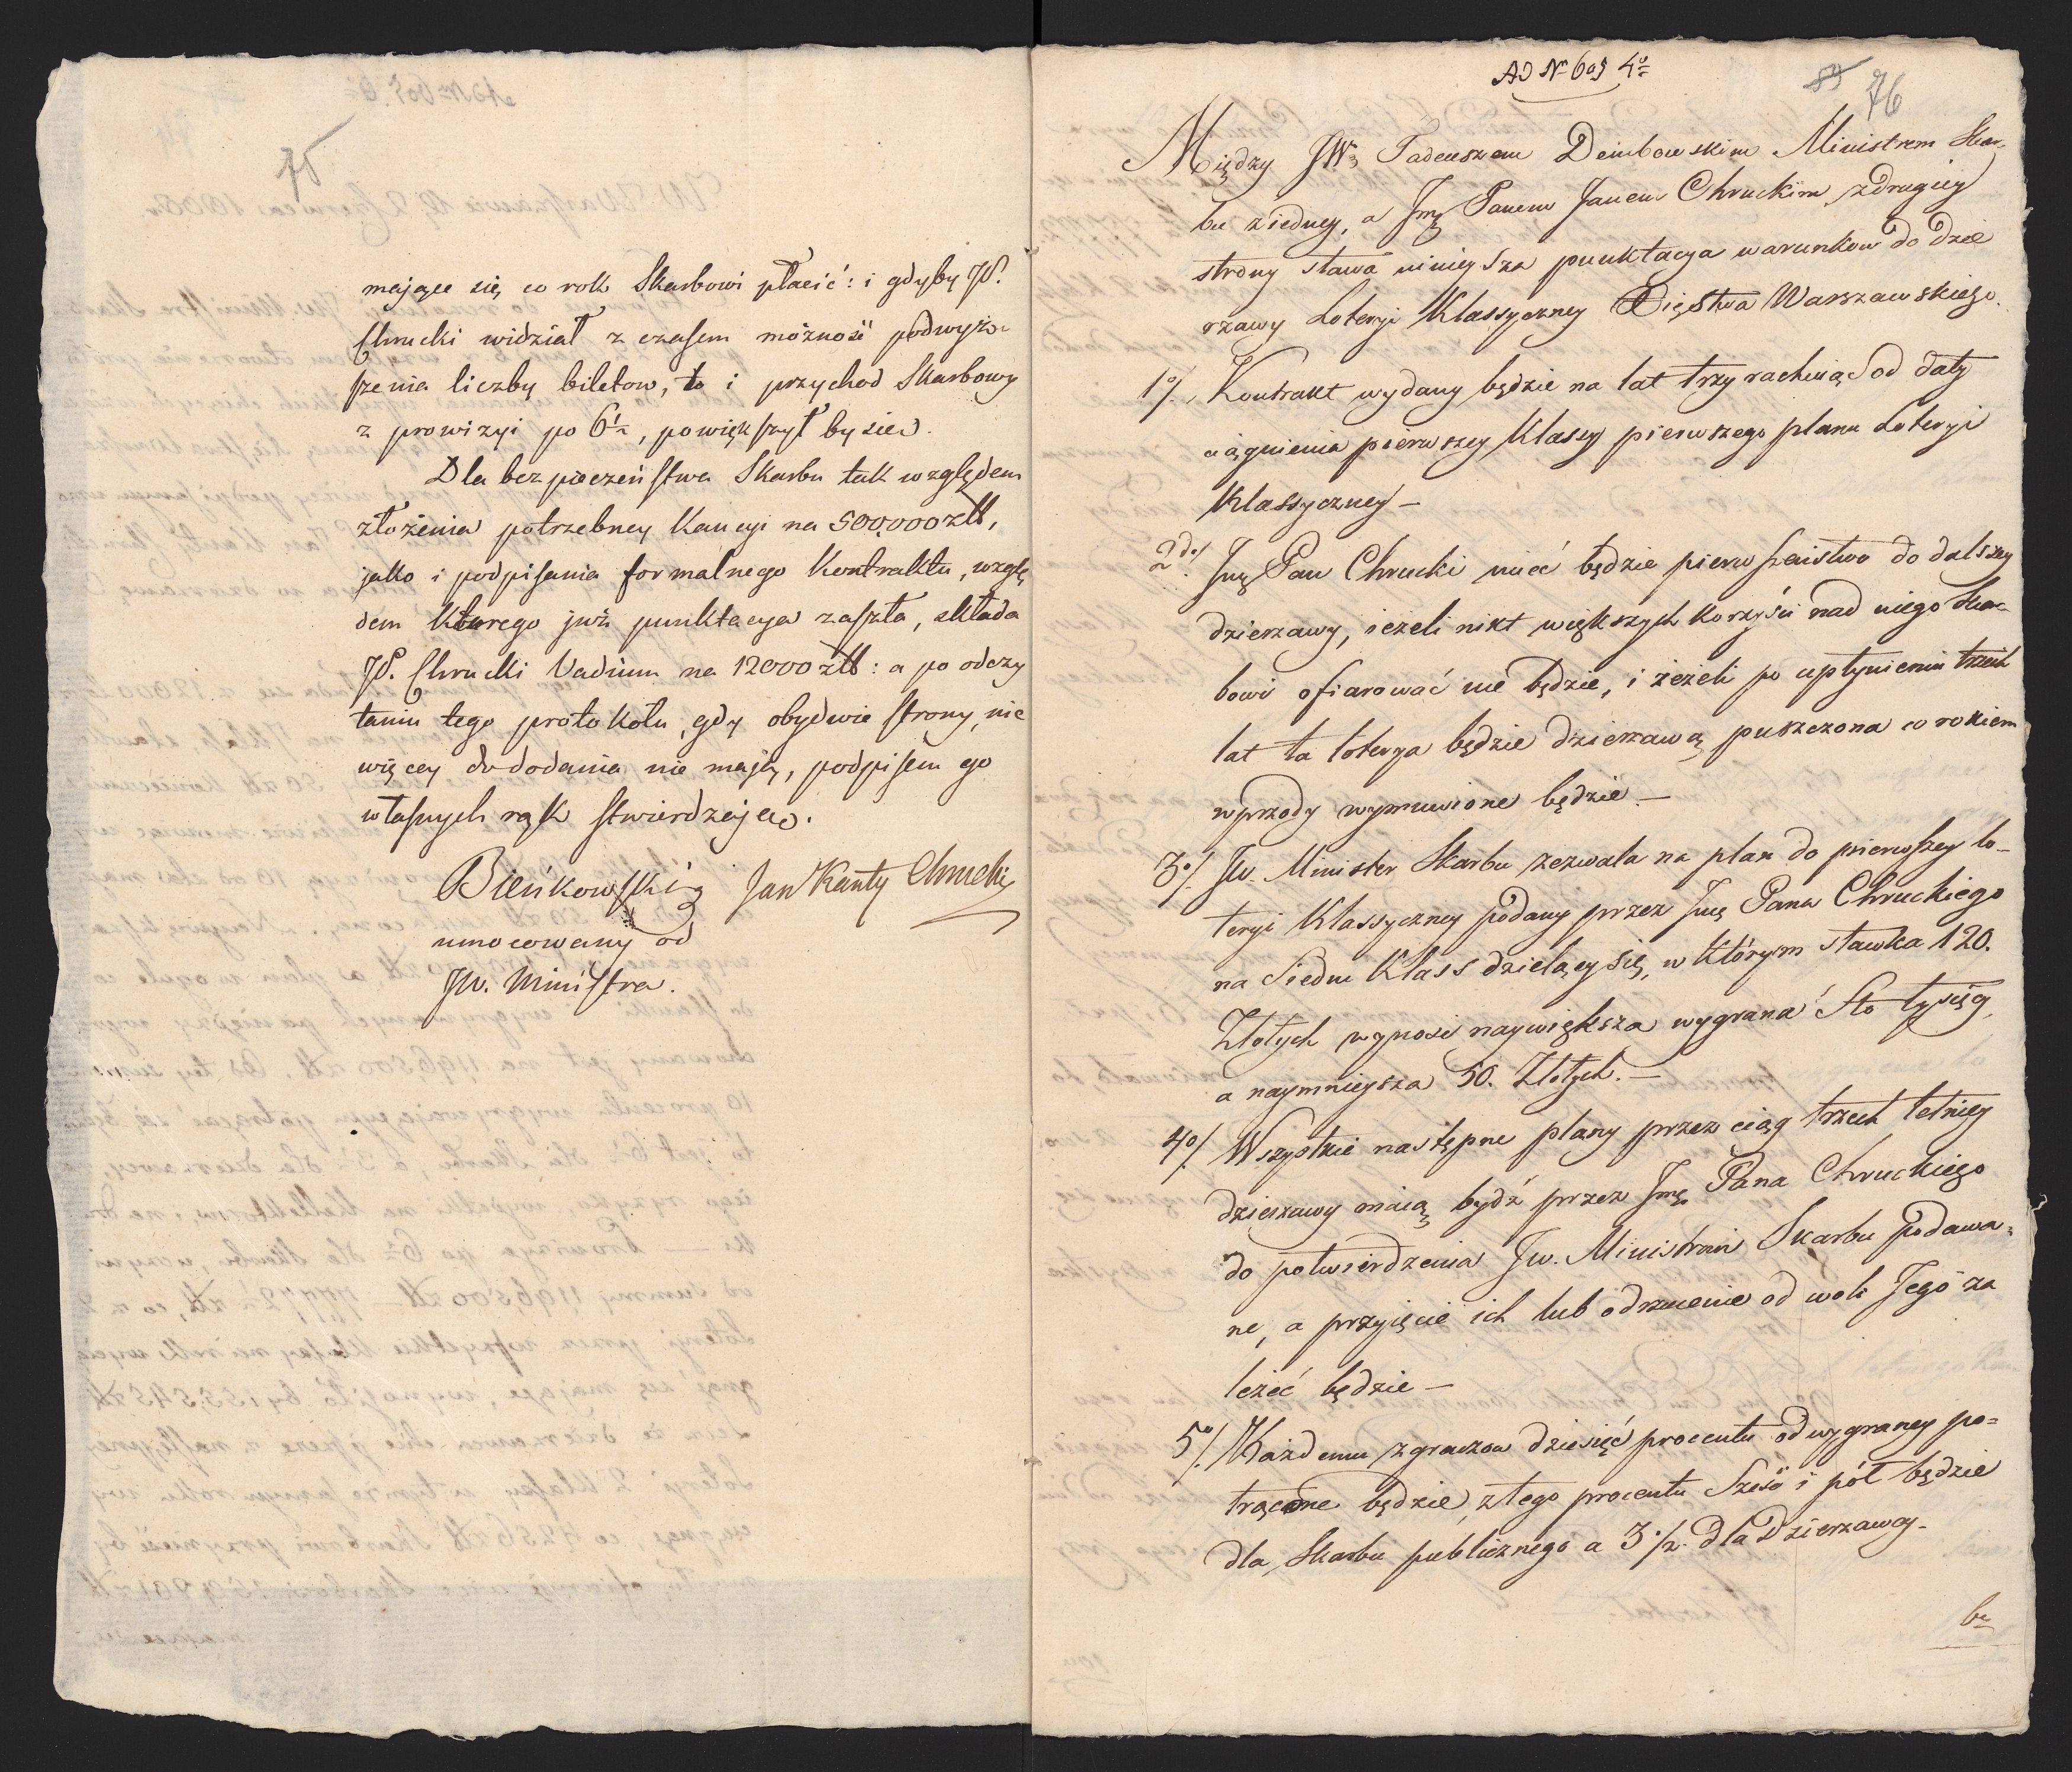 75
mające się co rok Skarbowi płacić: i gdyby JP.
Chrucki widział z czasem możność podwyż-
szenia liczby biletow, to i przychod Skarbowy
z prowizyi po 6½, powiększył by się.
Dla bezpieczeństwa Skarbu tak względem
złożenia potrzebney Kaucyi na 500,000 złł,
jako i podpisania formalnego Kontraktu, wzglę
dem ktorego już punktacya zaszła, składa
JP. Chrucki Vadium na 12000 złł: a po odczy
taniu tego protokołu, gdy obydwie strony, nic
więcey do dodania nie mają, podpisem go
własnych rąk stwierdzają.
Bieńkowski Jan Kanty Chrucki
umocowany od
JW. Ministra.
AD Nº 609 4º
76
Między JW. Tadeuszem Dembowskim Ministrem Skar-
bu z iedney, a Jmę Panem Janem Chruckim z drugiey
strony stawa ninieysza punktacya warunkow do dzie
rzawy Loteryi Klassyczney Xięstwa Warszawskiego.
1º/. Kontrakt wydany będzie na lat trzy rachuiąc od daty
ciągnienia pierwszey Klassy pierwszego planu Loteryi
Klassyczney —
2do/. Jmę Pan Chrucki mieć będzie pierwszeństwo do dalszey
dzierzawy, ieżeli nikt większych korzyści nad niego Skar-
bowi ofiarować nie będzie, i ieżeli po upłynieniu trzech
lat ta loterya będzie dzierzawą puszczona co rokiem
wprzody wymuwione będzie —
3º/. JW. Minister Skarbu zezwala na plan do pierwszey lo-
teryi Klassyczney podany przez Jmę Pana Chruckiego
na Siedm Klass dzielący się, w którym stawka 120.
Złotych wynosi naywiększa wygrana Sto tysięcy,
a naymnieysza 50. Złotych. —
4º/. Wszystkie następne plany przez ciąg trzech letniey
dzierzawy maią bydź przez Jmę Pana Chruckiego
do potwierdzenia JW. Ministrowi Skarbu podawa-
ne, a przyięcie ich lub odrzucenie od woli Jego za
leżeć będzie —
5º/. Każdemu z graczow dziesięć procentu od wygraney po-
trącone będzie, z tego procentu Sześć i pół będzie
dla Skarbu publicznego a 3½. dla Dzierzawcy.